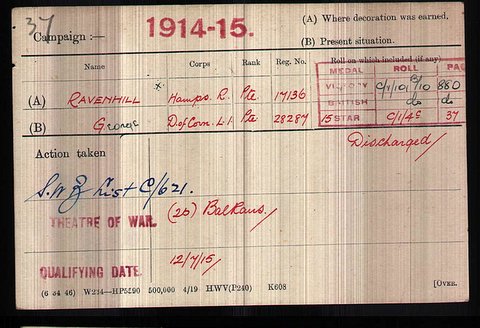 37
Campaign :— 1914-15. (A) Where decoration was earned.
(B) Present situation.
Name Corps Rank Reg. No. Roll on which included (if any).
MEDAL ROLL PAG
(A) RAVENHILL x Hamps. R. Pte. 17136 VICTORY 880
(B) George DofCorn. L.I Pte 28287 BRITISH do do
15 STAR C/1/4c 37
Action taken Discharged
S.W.B List C/621.
THEATRE OF WAR. (2b) Balkans.
QUALIFYING DATE. 12/7/15
(6 34 46) W234—HP5590 500,000 4/19 HWV(P240) K608 [OVER.